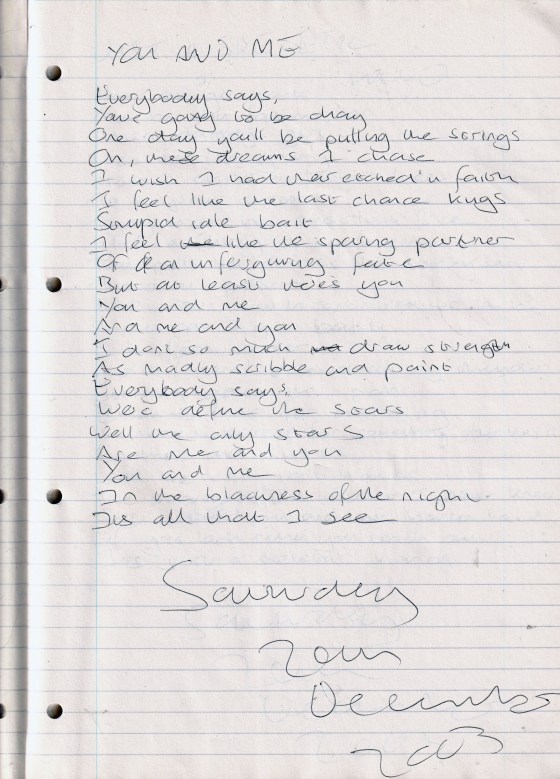 YOU AND ME
Everybody says,
Youre going to be okay
One day youll be pulling the strings
Oh, these dreams I chase
I wish I had them etched in faith
I feel like the last chance kings
Stupid idle bait
I feel the like the sparing partner
Of an unforgiving fate
But at least theres you
You and me
And me and you
I dont so much draw strength
As madly scribble and paint
Everybody says,
We'll define the stars
Well the only stars
Are me and you
You and me
In the blackness of the night
Its all that I see
Saturday
20th
December
2003